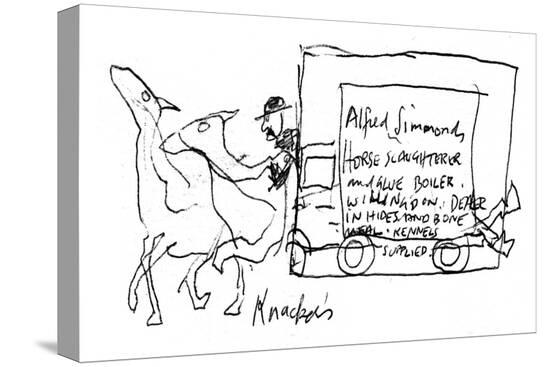 Alfred Simmonds
HORSE SLAUGHTERER
and GLUE BOILER.
WILLINGDON. DEALER
IN HIDES AND BONE
MEAL. KENNELS
SUPPLIED.
Knacker's